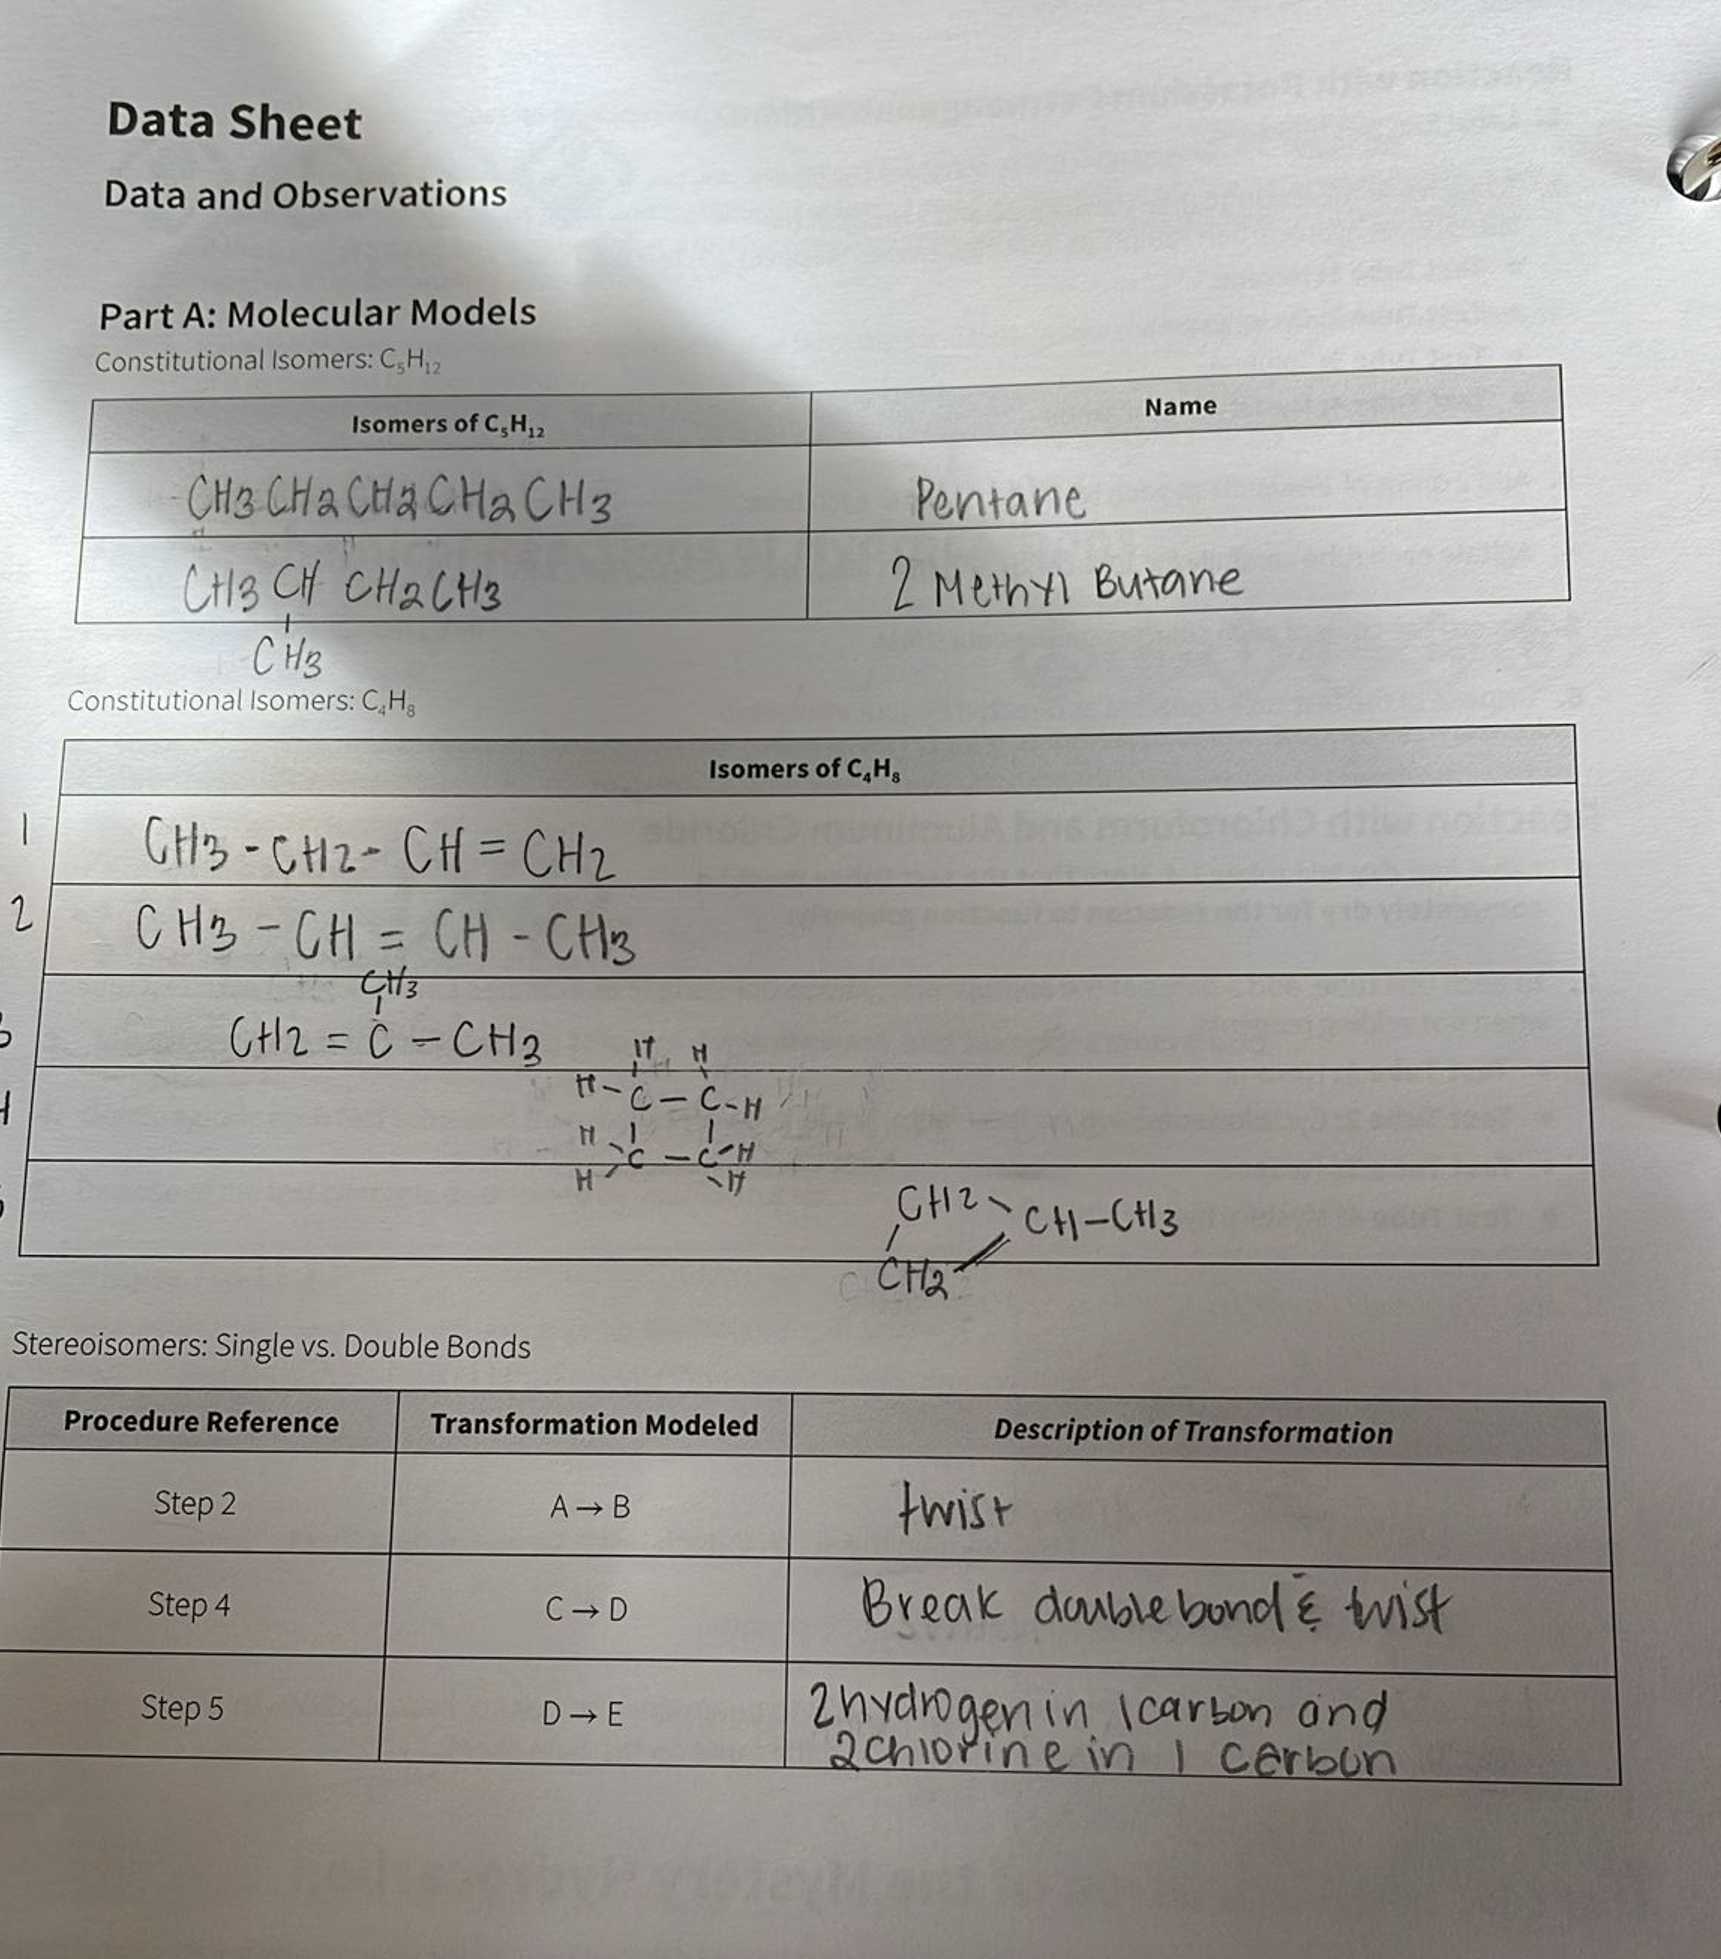 Data Sheet
Data and Observations
Part A: Molecular Models
Constitutional Isomers: C₅H₁₂
Isomers of C₅H₁₂ Name
CH3CH2CH2CH2CH3 Pentane
CH3 CH CH2CH3 2 Methyl Butane
CH3
Constitutional Isomers: C₄H₈
Isomers of C₄H₈
1 CH3-CH2-CH=CH2
2 CH3-CH=CH-CH3
CH3
CH2=C-CH3
H H
H-C-C-H
H C-C-H
H H
CH2 CH-CH3
CH2
Stereoisomers: Single vs. Double Bonds
Procedure Reference Transformation Modeled Description of Transformation
Step 2 A→B twist
Step 4 C→D Break double bond & twist
Step 5 D→E 2hydrogen in 1carbon and
2chlorine in 1 carbon